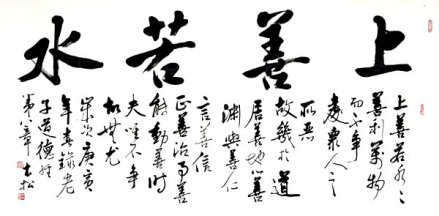 上善若水
上善若水〻
善利萬物
而不争
處衆人之
所惡
故幾於道
居善地心善
渊與善仁
言善信
正善治事善
能動善時
夫唯不争
故無尤
庚寅
年春錄老
子道德经